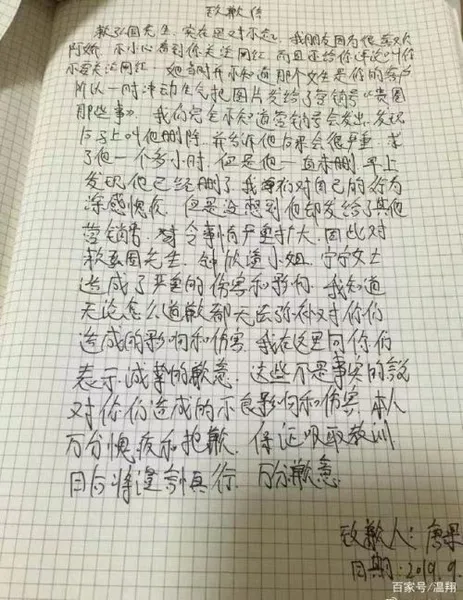 致歉信
赖弘国先生，实在是对不起，我朋友因为很喜欢
阿娇，不小心看到你关注网红，而且还给你评论叫你
不要关注网红，她当时并不知道那个女生是你的客户
所以一时冲动生气把图片发给了营销号"贵圈
那些事"。我们完全不知道营销号会发出，发现
后马上叫他删除，并告诉他后果会很严重，求
了他一个多小时，但是他一直未删，早上
发现他已经删了，我们对自己的行为
深感愧疚，但是没想到他却发给了其他
营销号，令事情严重扩大，因此对
赖弘国先生，钟欣潼小姐，宁宁女士
造成了严重的伤害和影响，我知道
无论怎么道歉都无法弥补对你们
造成的影响和伤害，我在这里向你们
表示诚挚的歉意，这些不是事实的说
对你们造成的不良影响和伤害，本人
万分愧疚和抱歉，保证吸取教训
日后将谨言慎行，万分歉意。
致歉人：唐果
日期：2019.9.
百家号/温翔